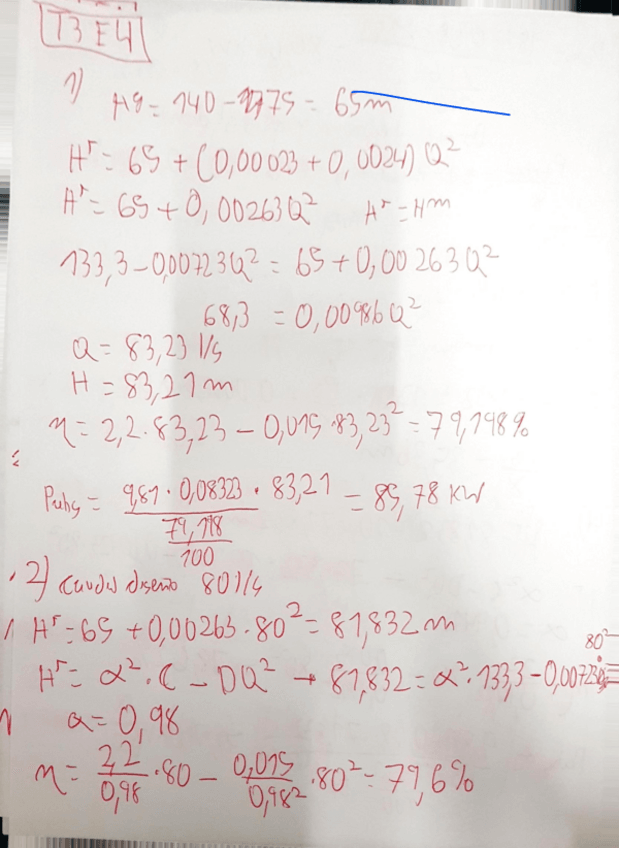 T3 E4
1)
Hg = 140 - 75 = 65m
H^r = 65 + (0,00023 + 0,0024) Q²
H^r = 65 + 0,00263Q² H^r = H^m
133,3 - 0,00723Q² = 65 + 0,00263Q²
68,3 = 0,00986Q²
Q = 83,23 l/s
H = 83,21m
η = 2,2 · 83,23 - 0,015 · 83,23² = 79,198%
= 9,81 · 0,08323 · 83,21 / (79,198 / 100) = 85,78 KW
2) caudal diseño 80 l/s
H^r = 65 + 0,00263 · 80² = 81,832m
H^r = α² · C - DQ² → 81,832 = α² · 133,3 - 0,00723 80²
α = 0,98
η = 2,2/0,98 · 80 - 0,015/0,98² · 80² = 79,6%